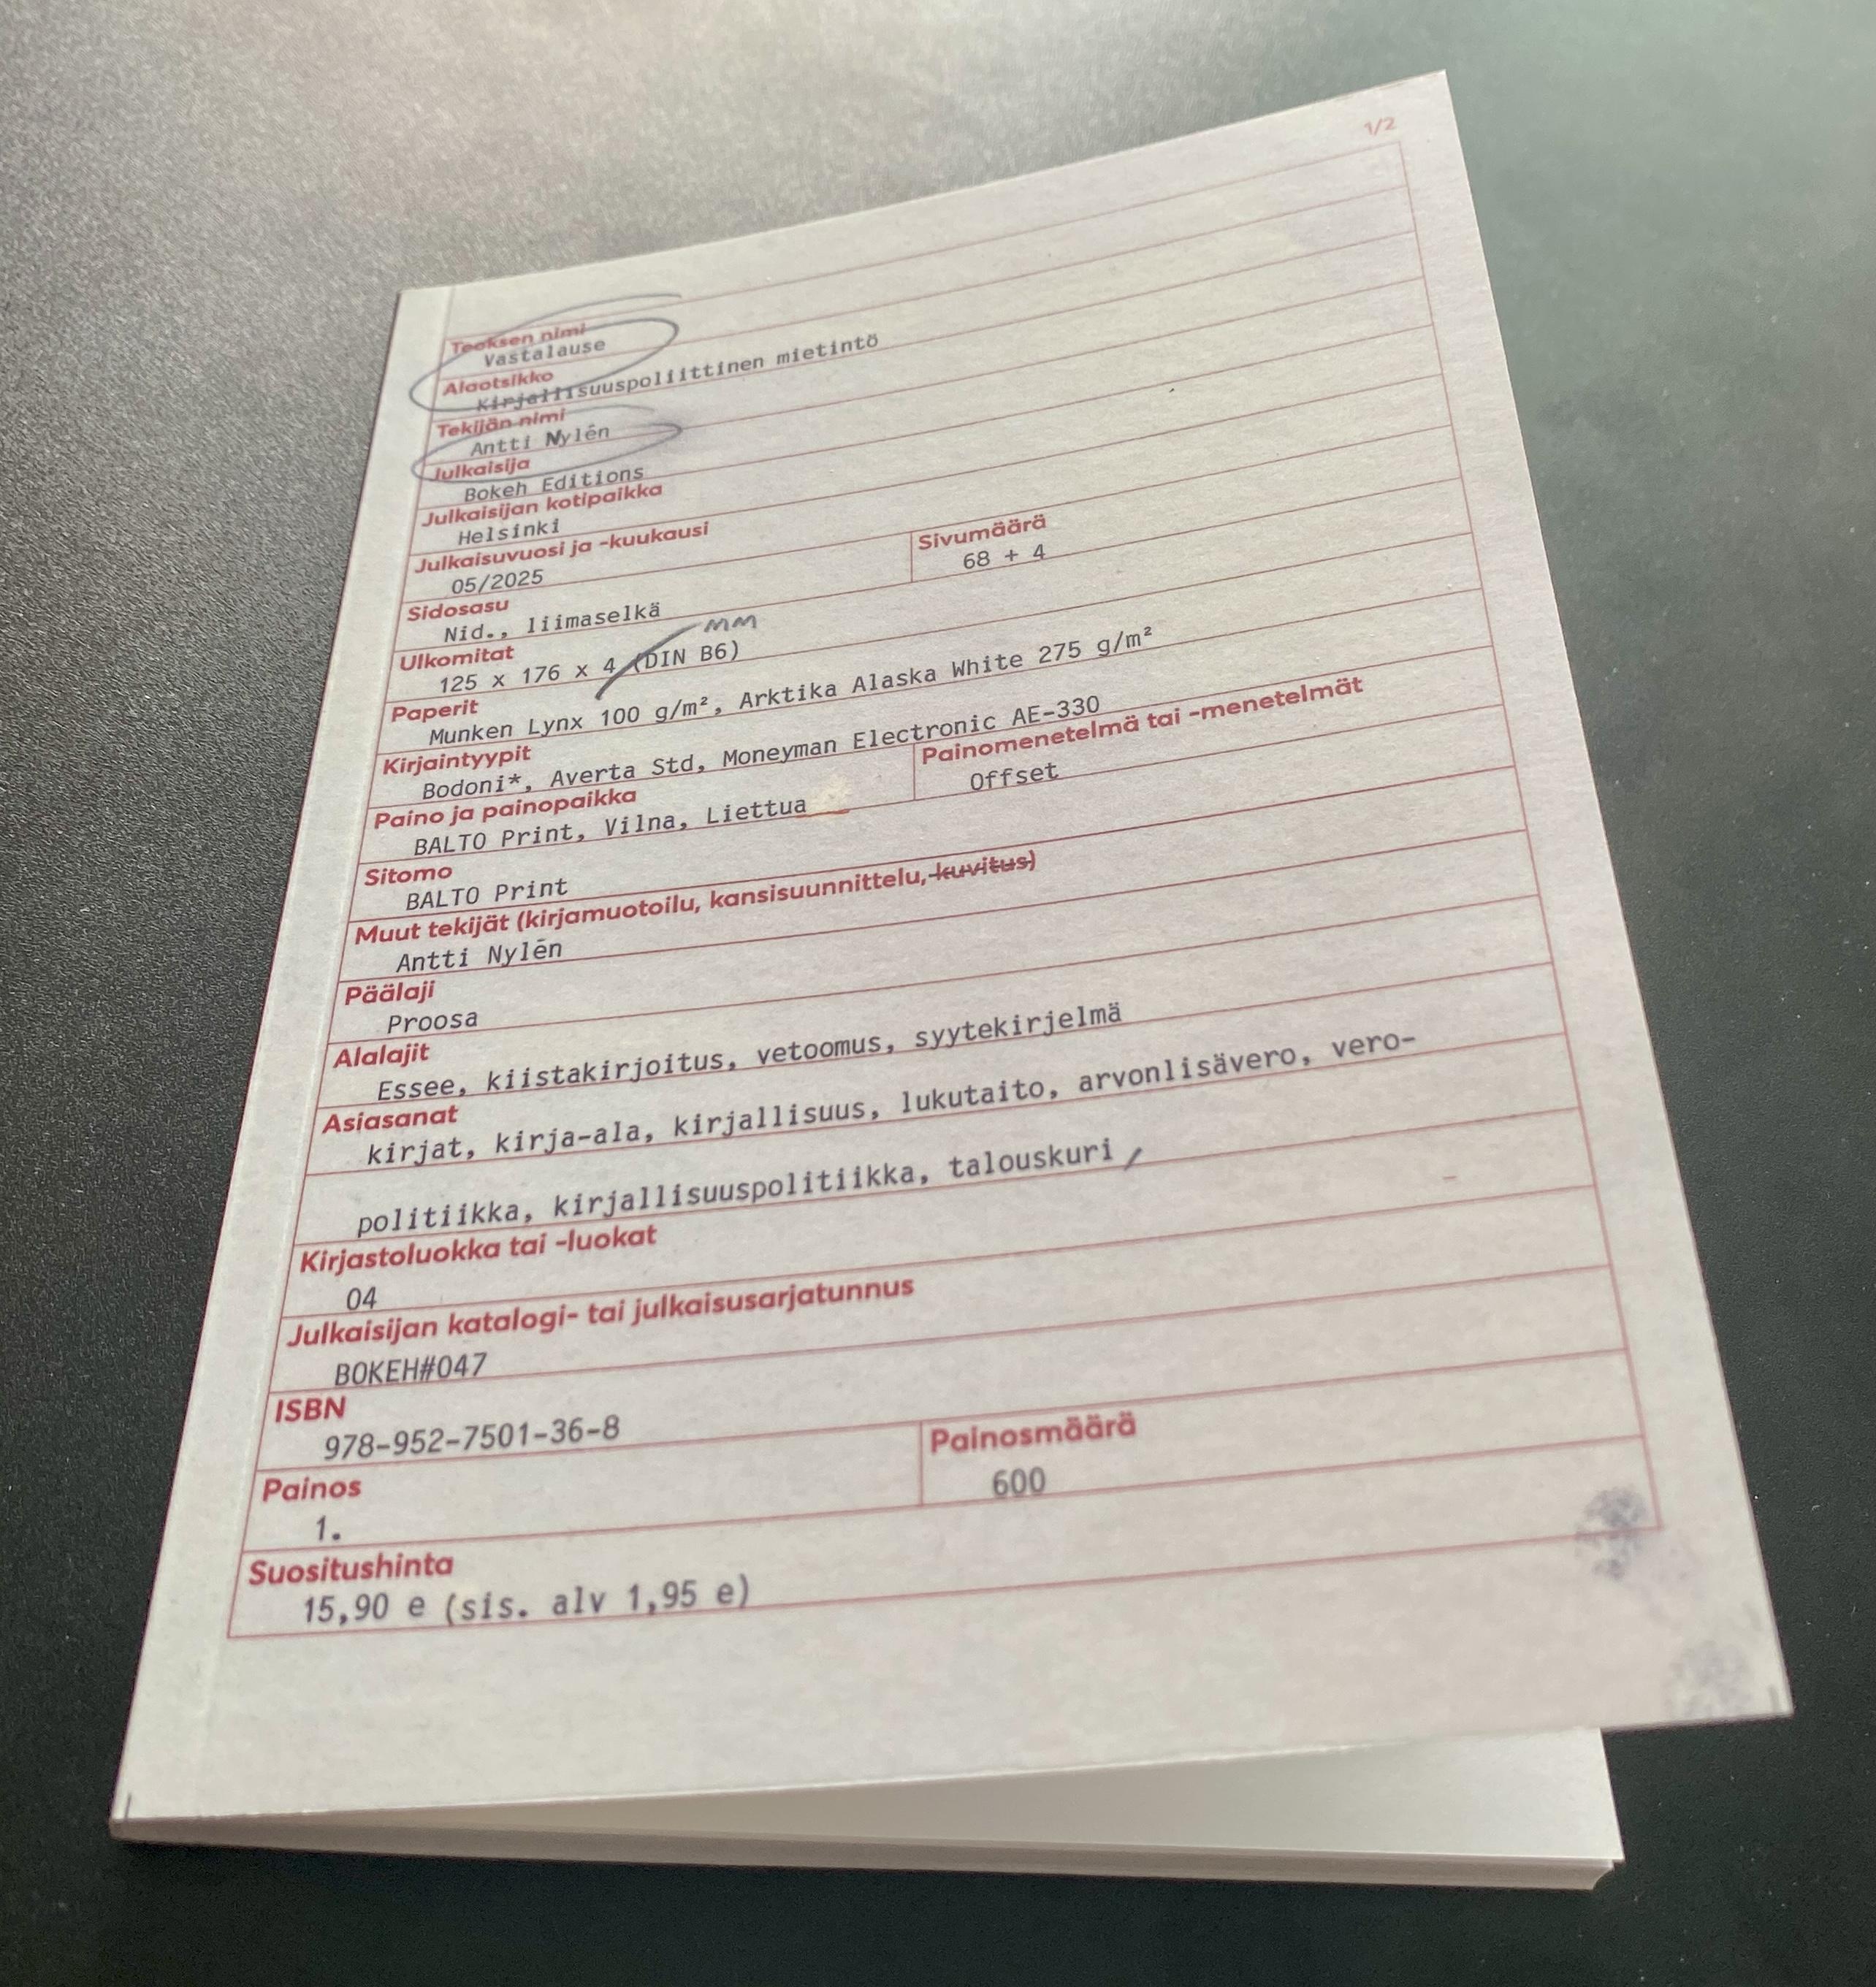 1/2
Teoksen nimi
Vastalause
Alaotsikko
Kirjallisuuspoliittinen mietintö
Tekijän nimi
Antti Nylén
Julkaisija
Bokeh Editions
Julkaisijan kotipaikka
Helsinki
Julkaisuvuosi ja -kuukausi
05/2025
Sivumäärä
68 + 4
Sidosasu
Nid., liimaselkä
Ulkomitat
mm
125 x 176 x 4 (DIN B6)
Paperit
Munken Lynx 100 g/m², Arktika Alaska White 275 g/m²
Kirjaintyypit
Bodoni*, Averta Std, Moneyman Electronic AE-330
Paino ja painopaikka
BALTO Print, Vilna, Liettua
Painomenetelmä tai -menetelmät
Offset
Sitomo
BALTO Print
Muut tekijät (kirjamuotoilu, kansisuunnittelu, kuvitus)
Antti Nylén
Päälaji
Proosa
Alalajit
Essee, kiistakirjoitus, vetoomus, syytekirjelmä
Asiasanat
kirjat, kirja-ala, kirjallisuus, lukutaito, arvonlisävero, vero-
politiikka, kirjallisuuspolitiikka, talouskuri
Kirjastoluokka tai -luokat
04
Julkaisijan katalogi- tai julkaisusarjatunnus
BOKEH#047
ISBN
978-952-7501-36-8
Painos
1.
Painosmäärä
600
Suositushinta
15,90 e (sis. alv 1,95 e)